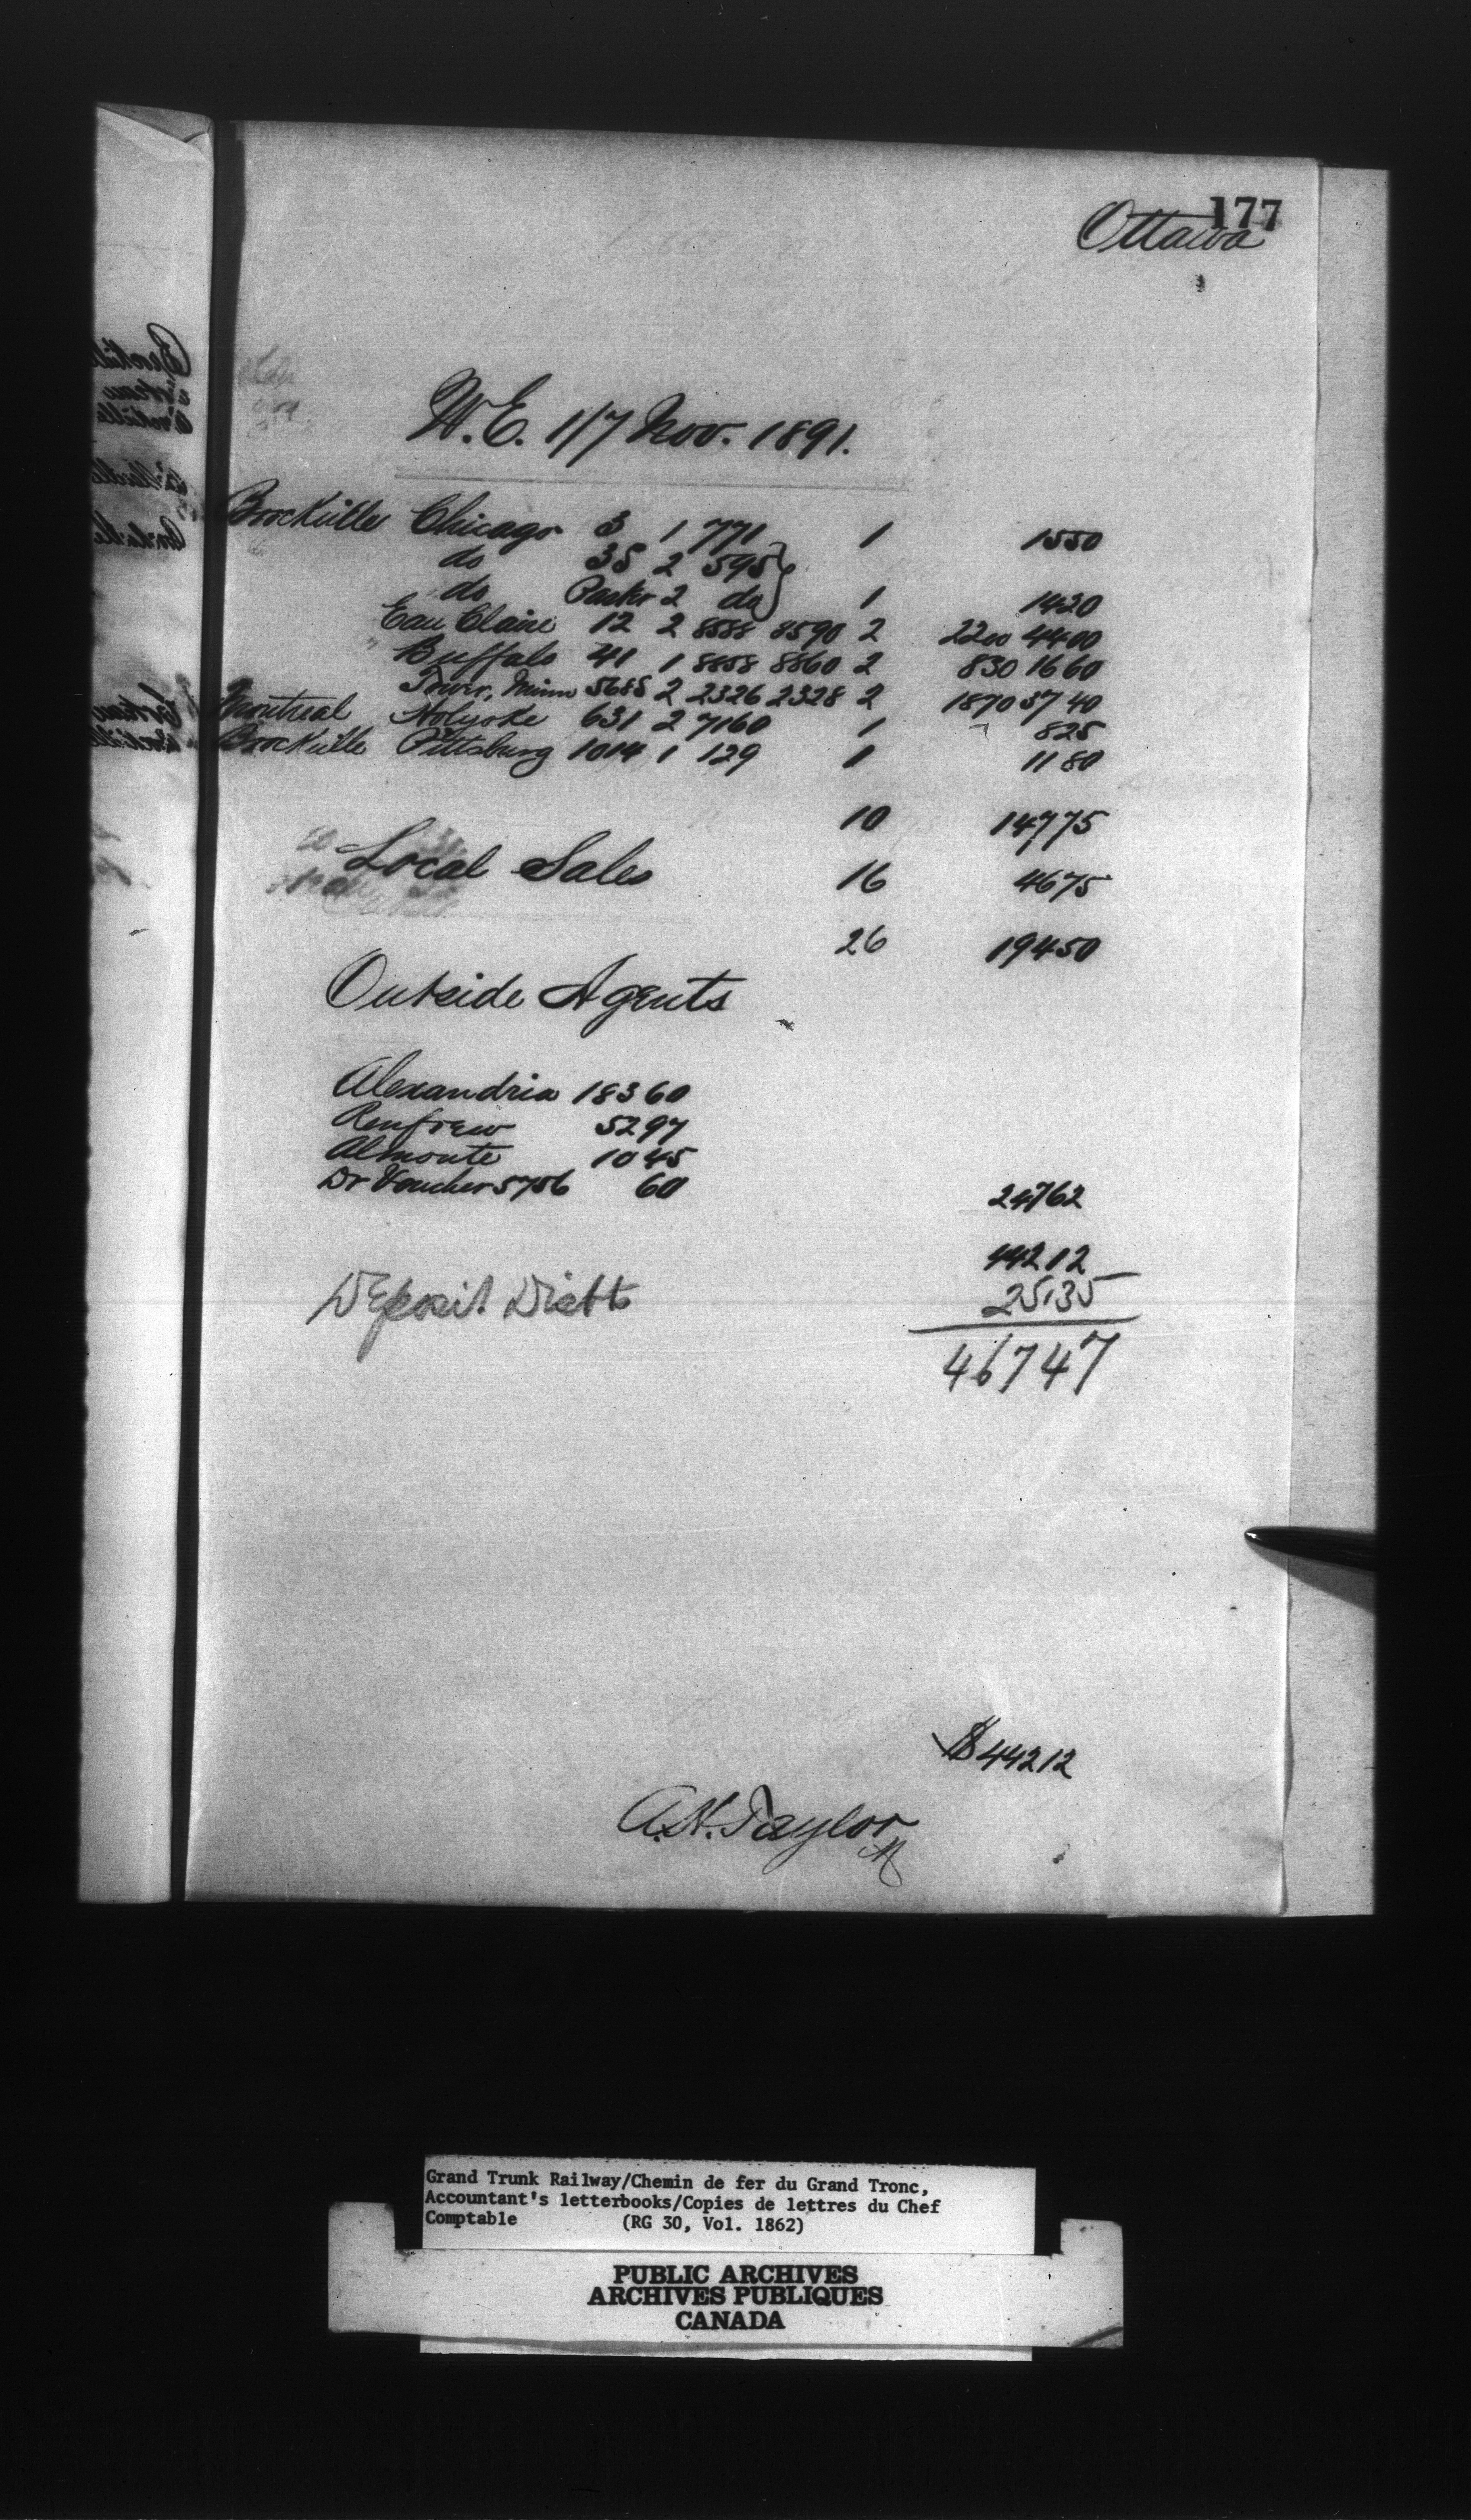 177
Ottawa
W.E. 1/7 Nov. 1891.
Brockville Chicago 3 1 771 1 1550
do 35 2 595 }
do Passr 2 do } 1 1420
Eau Claire 12 2 8588 8590 2 2200 4400
" Buffalo 41 1 8858 8860 2 830 1660
Tower, Minn 5685 2 2326 2328 2 1870 37 40
Montreal Holyoke 631 2 7160 1 825
Brockville Pittsburg 1014 1 129 1 11 80
10 14775
Local Sales 16 4675
26 19450
Outside Agents
Alexandria 183 60
Renfrew 52 97
Almonte 10 45
Dr Voucher 5756 60 24762
44212
Deposit Distt 25.35
46747
$ 44212
A.H. Taylor
Grand Trunk Railway/Chemin de fer du Grand Tronc,
Accountant's letterbooks/Copies de lettres du Chef
Comptable (RG 30, Vol. 1862)
PUBLIC ARCHIVES
ARCHIVES PUBLIQUES
CANADA